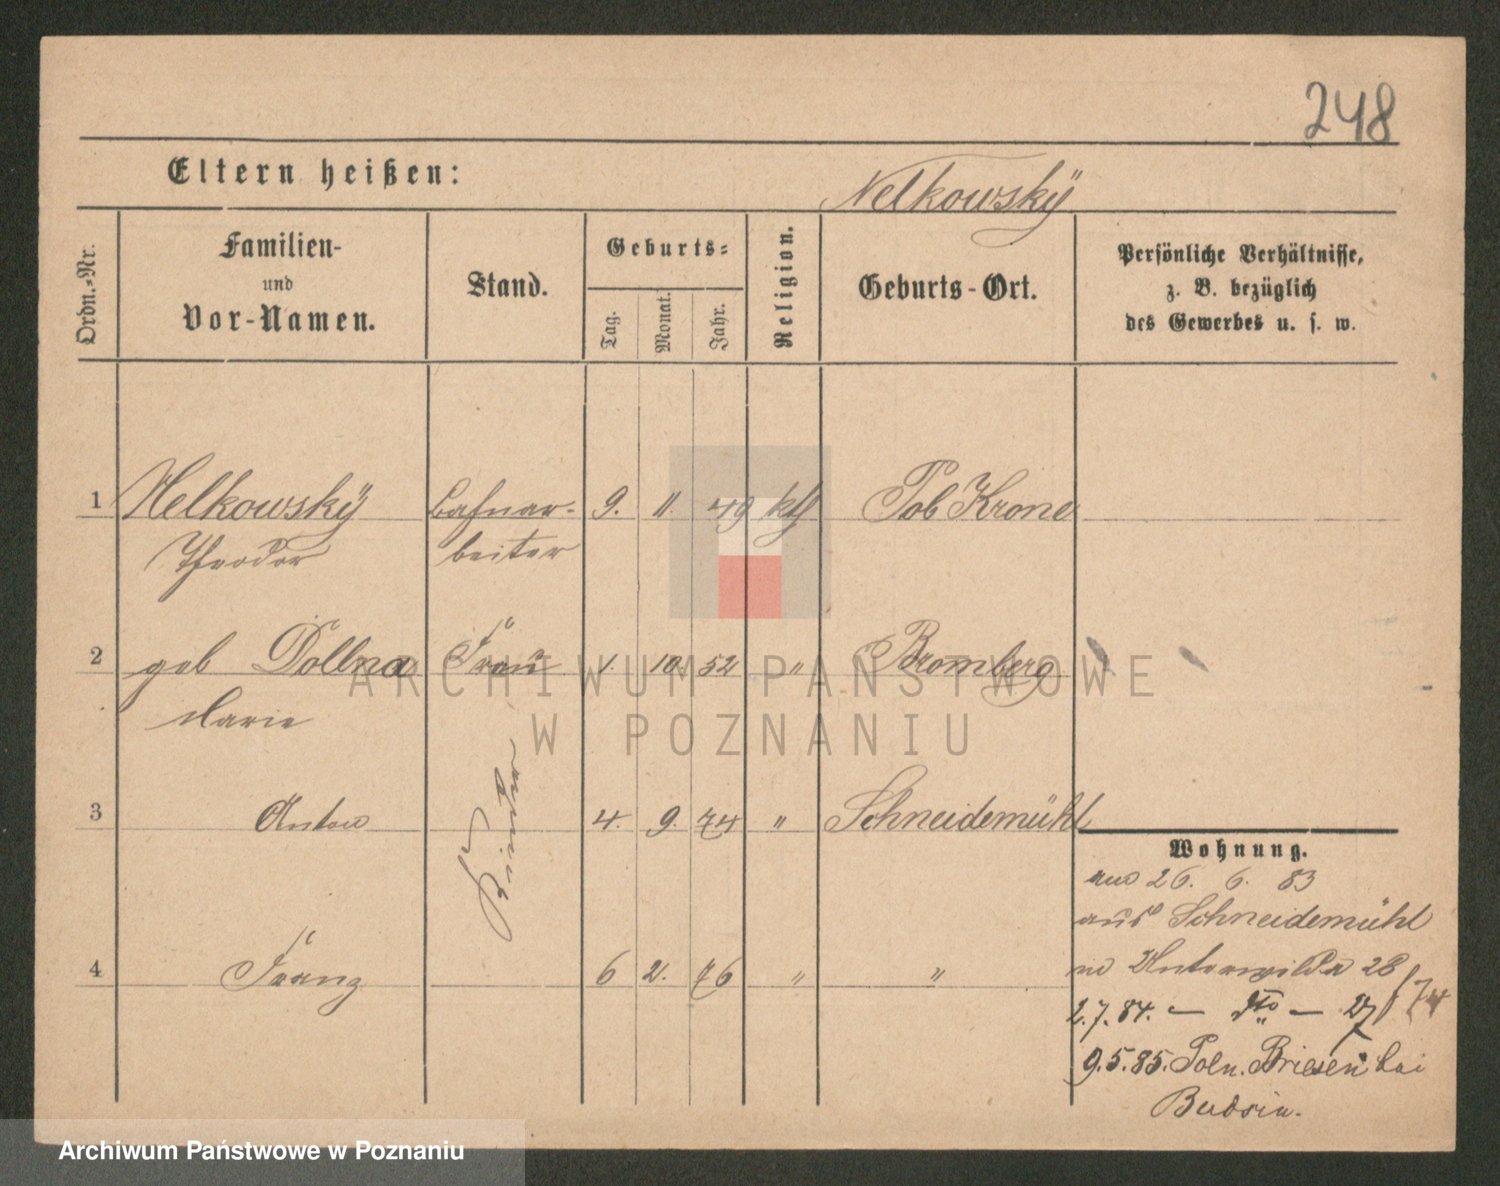 248
Eltern heißen:
Nelkowskÿ
Ordn.-Nr.
Familien-
und
Vor-Namen.
Stand.
Geburts-
Tag.
Monat.
Jahr.
Religion.
Geburts-Ort.
Persönliche Verhältnisse,
z. B. bezüglich
des Gewerbes u. s. w.
1 Nelkowskÿ Bahnar- 9. 11. 49 kth Pob Krone
Theodor beiter
2 geb Dollna Frau 1. 10. 52 " Bromberg
Marie
Kinder
3 Anton 4. 9. 74 " Schneidemühl
4 Franz 6 2. 76 " "
Wohnung.
26. 6. 83
aus Schneidemühl
Unterwilda 28
2.7.84. — dto — 27/74
9.5.85. Poln. Briesen bei
Budsin.
ARCHIWUM PAŃSTWOWE
W POZNANIU
Archiwum Państwowe w Poznaniu